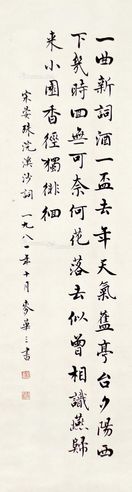 一曲新詞酒一盃去年天氣舊亭台夕陽西
下幾時回無可奈何花落去似曾相識燕歸
来小園香徑獨徘徊
宋晏殊浣溪沙詞 一九八一年十月 麥華三書